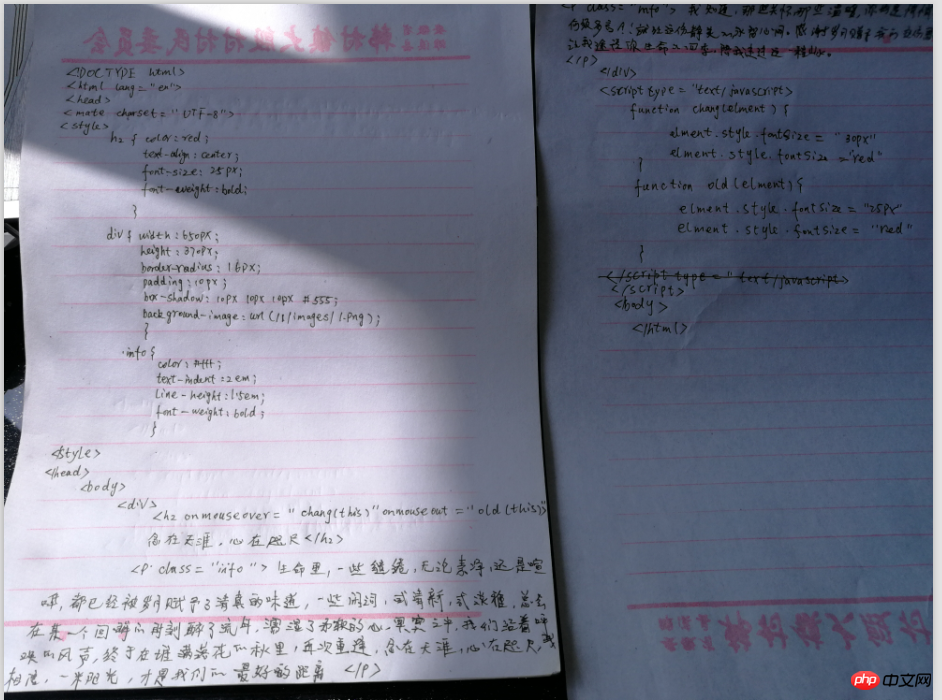 韩村镇大殷村村民委员会
<!DOCTYPE html>
<html lang="en">
<head>
<mate charset="UTF-8">
<style>
h2 { color:red;
text-align:center;
font-size: 25px;
font-weight:bold;
}
div{ width:650px;
height:370px;
border-radius: 16px;
padding:10px;
box-shadow: 10px 10px 10px #555;
background-image:url(/images/1.png);
}
.info{
color:#fff;
text-indent:2em;
line-height:1.5em;
font-weight:bold;
}
<style>
</head>
<body>
<div>
<h2 onmouseover="chang(this)" onmouseout="old(this)">
念在天涯,心在咫尺</h2>
<p class="info">生命里,一些缱绻,无论素净,还是喧
哗,都已经被岁月赋予了清真的味道,一些闲词,或清新,或淡雅,总会
在某一个回眸的时刻醉了流年,濡湿了柔软的心。
风声,终于在堆满落花的秋里,再次重逢,念在天涯,心在咫尺,我
相信,一米阳光,才是我们的最好的距离</p>
<p class="info">我知道,那些关怀那些温暖
</p>
</div>
<script type="text/javascript>
function chang(elment){
elment.style.fontSize = "30px"
elment.style.fontSize ="red"
}
function old(elment){
elment.style.fontSize = "25px"
elment.style.fontSize = "red"
}
</script type="text/javascript>
</script>
<body>
</html>
php 中文网